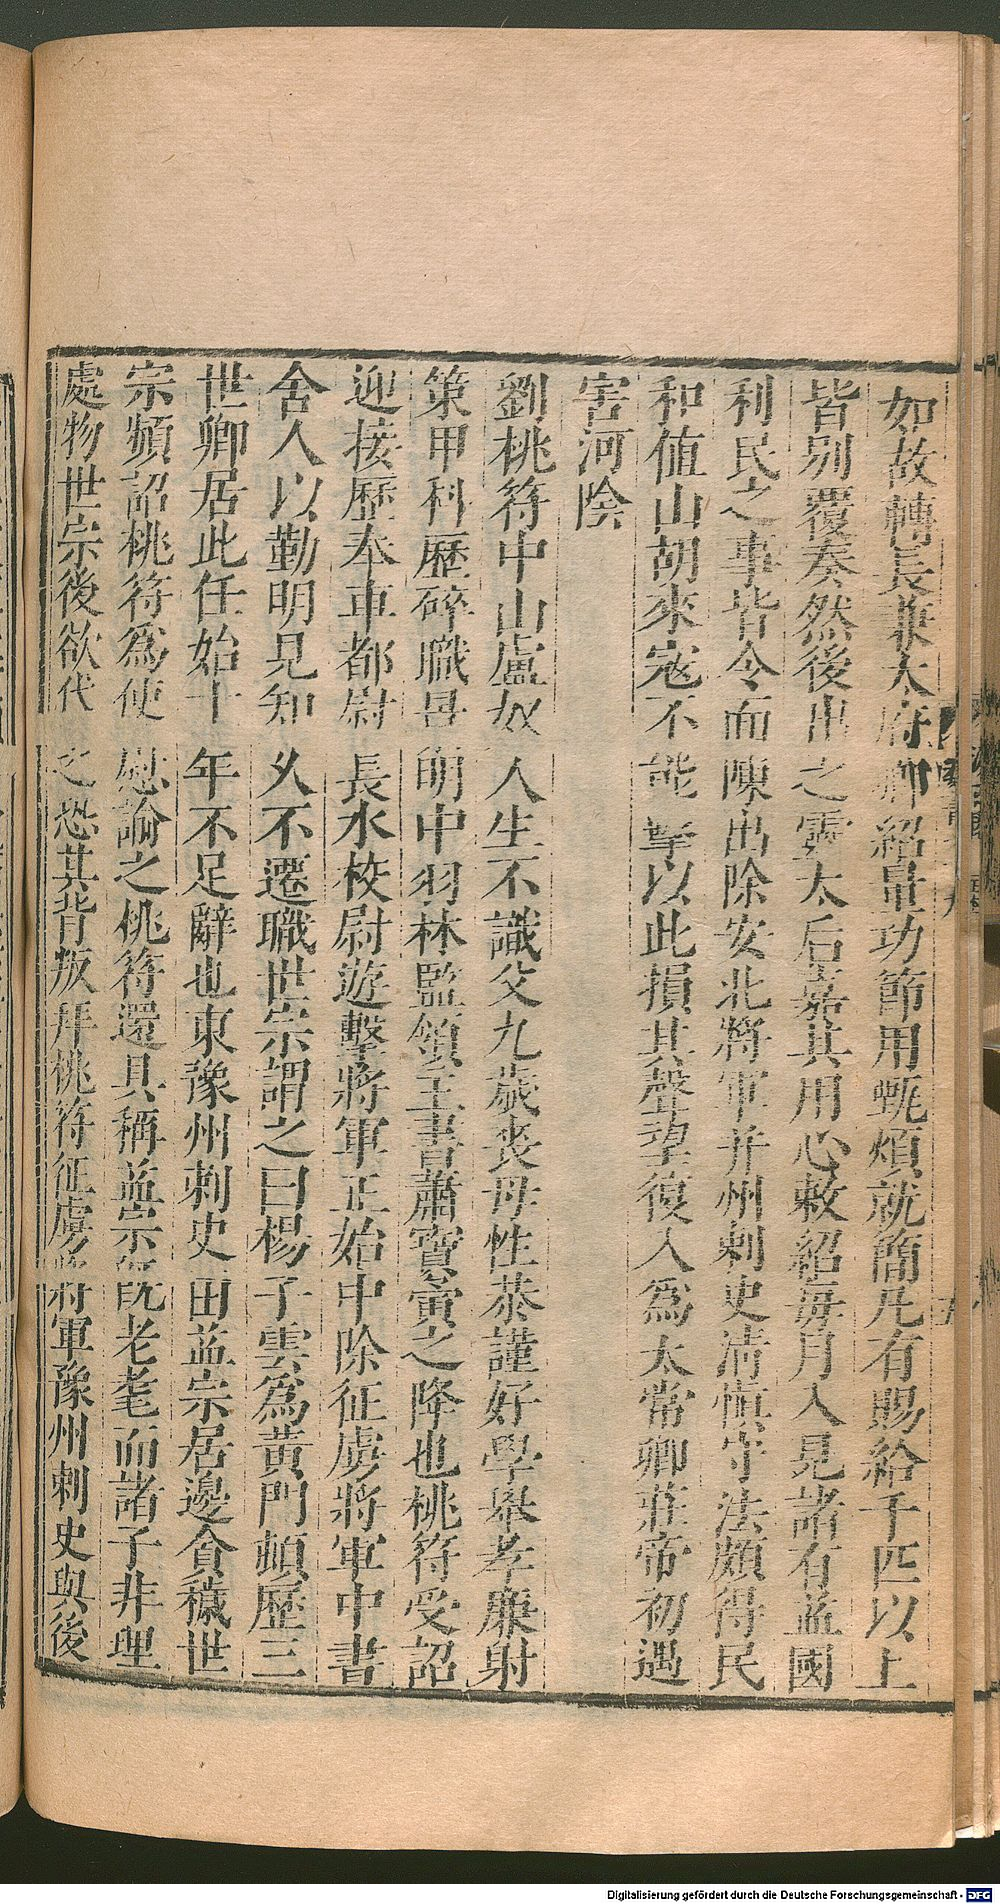 如故轉長兼太府卿紹量功節用甄煩就簡凡有賜給千匹以上
皆别覆奏然後出之靈太后嘉其用心敕紹每月入見諸有益國
利民之事皆令面陳出除安北將軍并州刺史清慎守法頗得民
和值山胡來寇不能擊以此損其聲望復入爲太常卿莊帝初遇
害河陰
劉桃符中山盧奴人生不識父九歲喪母性恭謹好學舉孝廉射
策甲科歷碎職景明中羽林監領主書蕭寶寅之降也桃符受詔
迎接歷奉車都尉長水校尉遊擊將軍正始中除征虜將軍中書
舍人以勤明見知久不遷職世宗謂之曰楊子雲爲黃門頓歷三
世卿居此任始十年不足辭也東豫州刺史田益宗居邊貪穢世
宗頻詔桃符爲使慰諭之桃符還具稱益宗既老耄而諸子非理
處物世宗後欲代之恐其背叛拜桃符征虜將軍豫州刺史與後
Digitalisierung gefördert durch die Deutsche Forschungsgemeinschaft - DFG